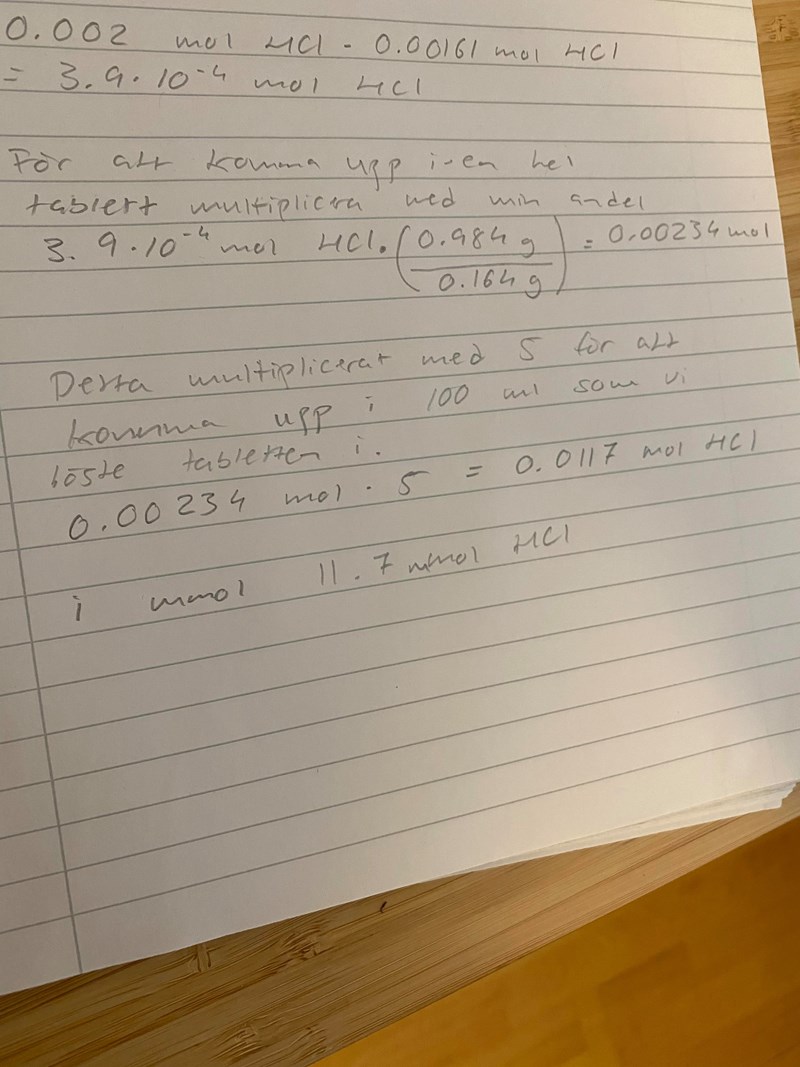 0.002 mol HCl - 0.00161 mol HCl
= 3.9 · 10⁻⁴ mol HCl
För att komma upp i en hel
tablett multiplicera med min andel
3.9 · 10⁻⁴ mol HCl · (0.984 g / 0.164 g) = 0.00234 mol
Detta multiplicerat med 5 för att
komma upp i 100 ml som vi
löste tabletten i.
0.00234 mol · 5 = 0.0117 mol HCl
i mmol 11.7 mmol HCl